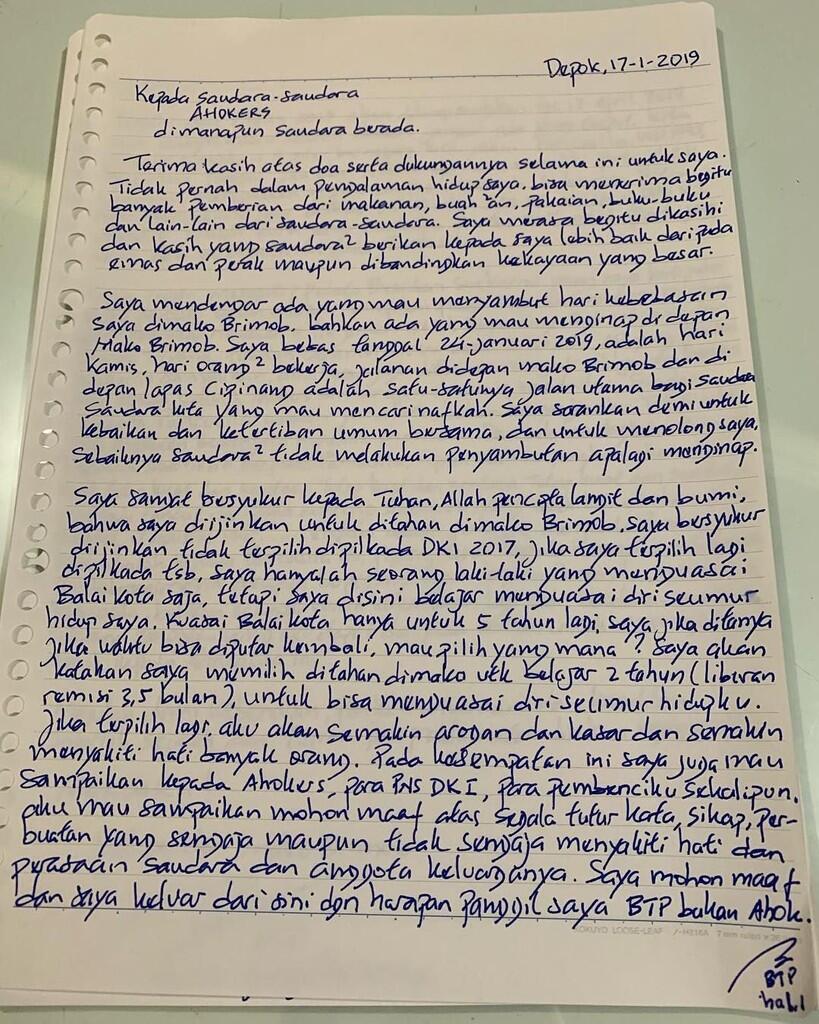 Depok, 17-1-2019
Kepada Saudara-saudara
AHOKERS
dimanapun saudara berada.
Terima kasih atas doa serta dukungannya selama ini untuk saya.
Tidak pernah dalam pengalaman hidup saya, bisa menerima begitu
banyak pemberian dari makanan, buah²an, pakaian, buku-buku
dan lain-lain dari saudara-saudara. Saya merasa begitu dikasihi
dan kasih yang saudara² berikan kepada saya lebih baik daripada
emas dan perak maupun dibandingkan kekayaan yang besar.
Saya mendengar ada yang mau menyambut hari kebebasan
saya dimako Brimob. bahkan ada yang mau menginap di depan
Mako Brimob. Saya bebas tanggal 24-januari 2019, adalah hari
Kamis, hari orang² bekerja, jalanan didepan mako Brimob dan di
depan lapas Cipinang adalah satu-satunya jalan utama bagi saudara
saudara kita yang mau mencari nafkah. Saya sarankan demi untuk
kebaikan dan ketertiban umum bersama, dan untuk menolong saya,
Sebaiknya saudara² tidak melakukan penyambutan apalagi menginap.
Saya sangat bersyukur kepada Tuhan, Allah pencipta langit dan bumi,
bahwa saya diijinkan untuk ditahan dimako Brimob. saya bersyukur
diijinkan tidak terpilih dipilkada DKI 2017, jika saya terpilih lagi
dipilkada tsb, saya hanyalah seorang laki-laki yang menguasai
Balai kota saja, tetapi saya disini belajar menguasai diri seumur
hidup saya. Kuasai Balai kota hanya untuk 5 tahun lagi, saya jika ditanya
jika waktu bisa diputar kembali, mau pilih yang mana? Saya akan
katakan saya memilih ditahan dimako utk belajar 2 tahun (liburan
remisi 3,5 bulan), untuk bisa menguasai diri seumur hidupku.
Jika terpilih lagi, aku akan semakin arogan dan kasar dan semakin
menyakiti hati banyak orang. Pada kesempatan ini saya juga mau
sampaikan kepada Ahokers, para PNS DKI, para pembenciku sekalipun,
aku mau sampaikan mohon maaf atas segala tutur kata, sikap, per-
buatan yang sengaja maupun tidak sengaja menyakiti hati dan
perasaan saudara dan anggota keluarganya. Saya mohon maaf
dan saya keluar dari sini dgn harapan panggil saya BTP bukan Ahok.
KOKUYO LOOSE-LEAF
BTP